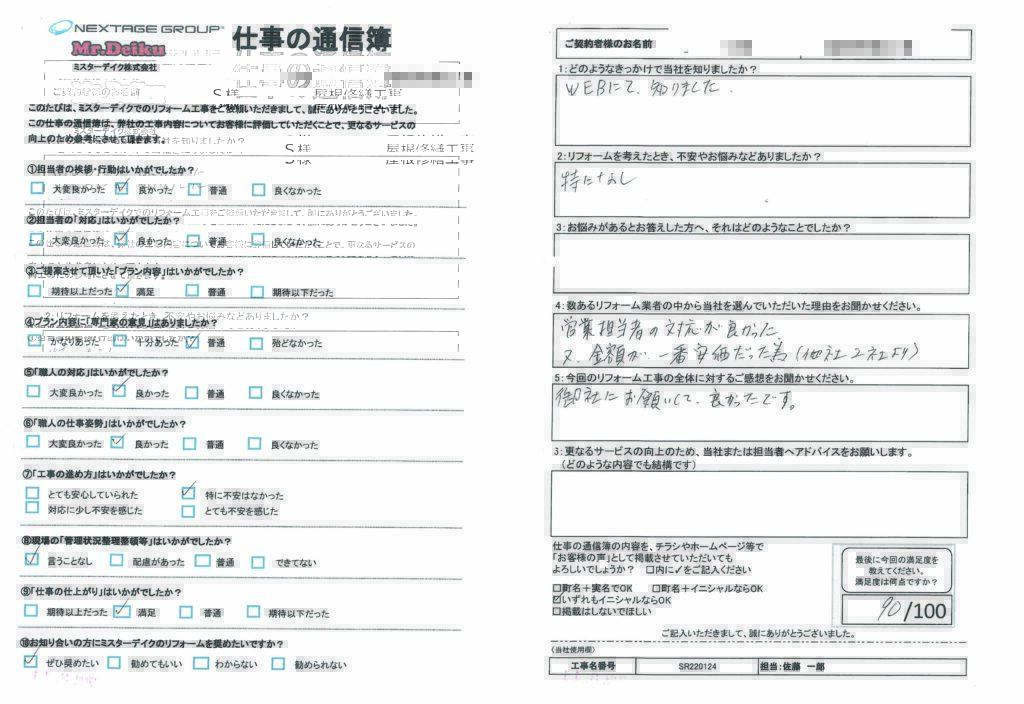 NEXTAGE GROUP
Mr.Deiku
ミスターデイク株式会社
仕事の通信簿
S様 屋根修繕工事
このたびは、ミスターデイクでのリフォーム工事をご依頼いただきまして、誠にありがとうございました。
この仕事の通信簿は、弊社の工事内容についてお客様に評価していただくことで、更なるサービスの
向上のため参考にさせて頂きます。
S様 屋根修繕工事
①担当者の挨拶・行動はいかがでしたか？
大変良かった 良かった 普通 良くなかった
②担当者の「対応」はいかがでしたか？
大変良かった 良かった 普通 良くなかった
③ご提案させて頂いた「プラン内容」はいかがでしたか？
期待以上だった 満足 普通 期待以下だった
④プラン内容に「専門家の意見」はありましたか？
かなりあった 十分あった 普通 殆どなかった
⑤「職人の対応」はいかがでしたか？
大変良かった 良かった 普通 良くなかった
⑥「職人の仕事姿勢」はいかがでしたか？
大変良かった 良かった 普通 良くなかった
⑦「工事の進め方」はいかがでしたか？
とても安心していられた 特に不安はなかった
対応に少し不安を感じた とても不安を感じた
⑧現場の「管理状況整理整頓等」はいかがでしたか？
言うことなし 配慮があった 普通 できてない
⑨「仕事の仕上がり」はいかがでしたか？
期待以上だった 満足 普通 期待以下だった
⑩お知り合いの方にミスターデイクのリフォームを奨めたいですか？
ぜひ奨めたい 勧めてもいい わからない 勧められない
ご契約者様のお名前
1：どのようなきっかけで当社を知りましたか？
WEBにて、知りました.
2：リフォームを考えたとき、不安やお悩みなどありましたか？
特になし
3：お悩みがあるとお答えした方へ、それはどのようなことでしたか？
4：数あるリフォーム業者の中から当社を選んでいただいた理由をお聞かせください。
営業担当者の対応が良かった
又、金額が、一番安価だった為（他社2社より）
5：今回のリフォーム工事の全体に対するご感想をお聞かせください。
御社にお願いして、良かったです。
3：更なるサービスの向上のため、当社または担当者へアドバイスをお願いします。
（どのような内容でも結構です）
仕事の通信簿の内容を、チラシやホームページ等で
「お客様の声」として掲載させていただいても
よろしいでしょうか？ □内に✓をご記入ください
□町名＋実名でOK □町名＋イニシャルならOK
☑いずれもイニシャルならOK
□掲載はしないでほしい
最後に今回の満足度を
教えてください。
満足度は何点ですか？
90/100
ご記入いただきまして、誠にありがとうございました。
〈当社使用欄〉
工事名番号 SR220124 担当：佐藤 一郎